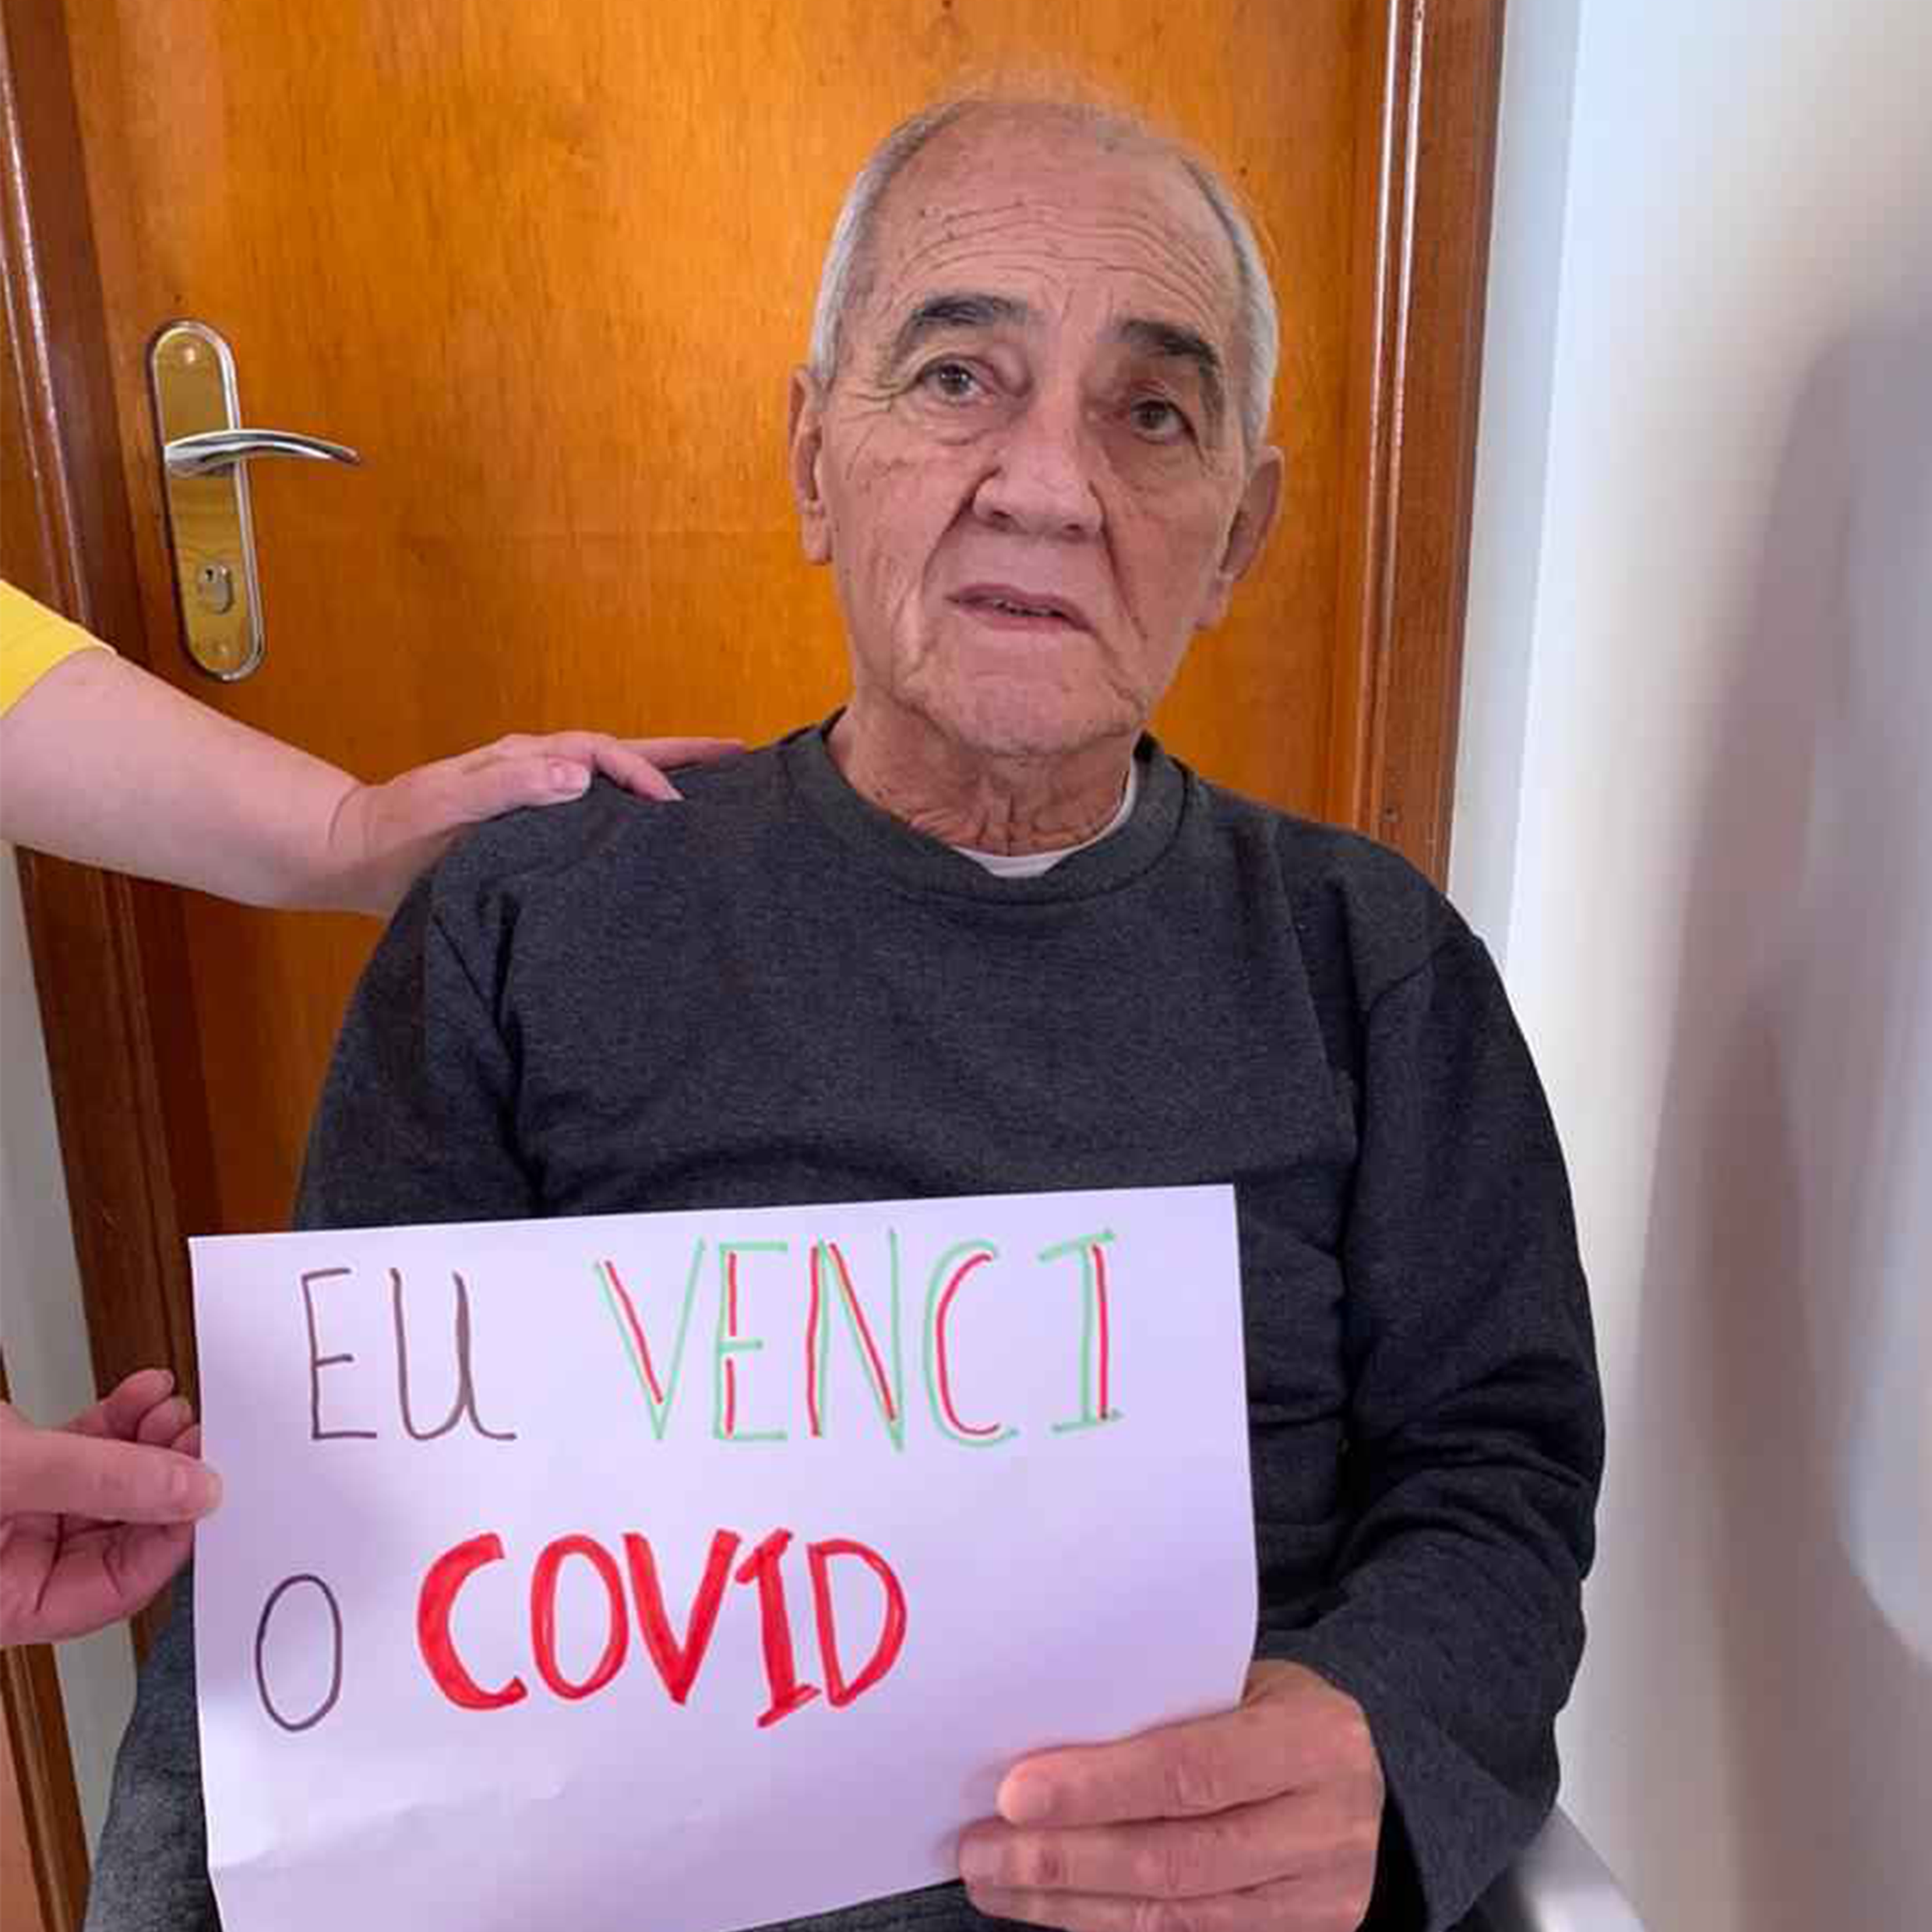 EU VENCI
O COVID